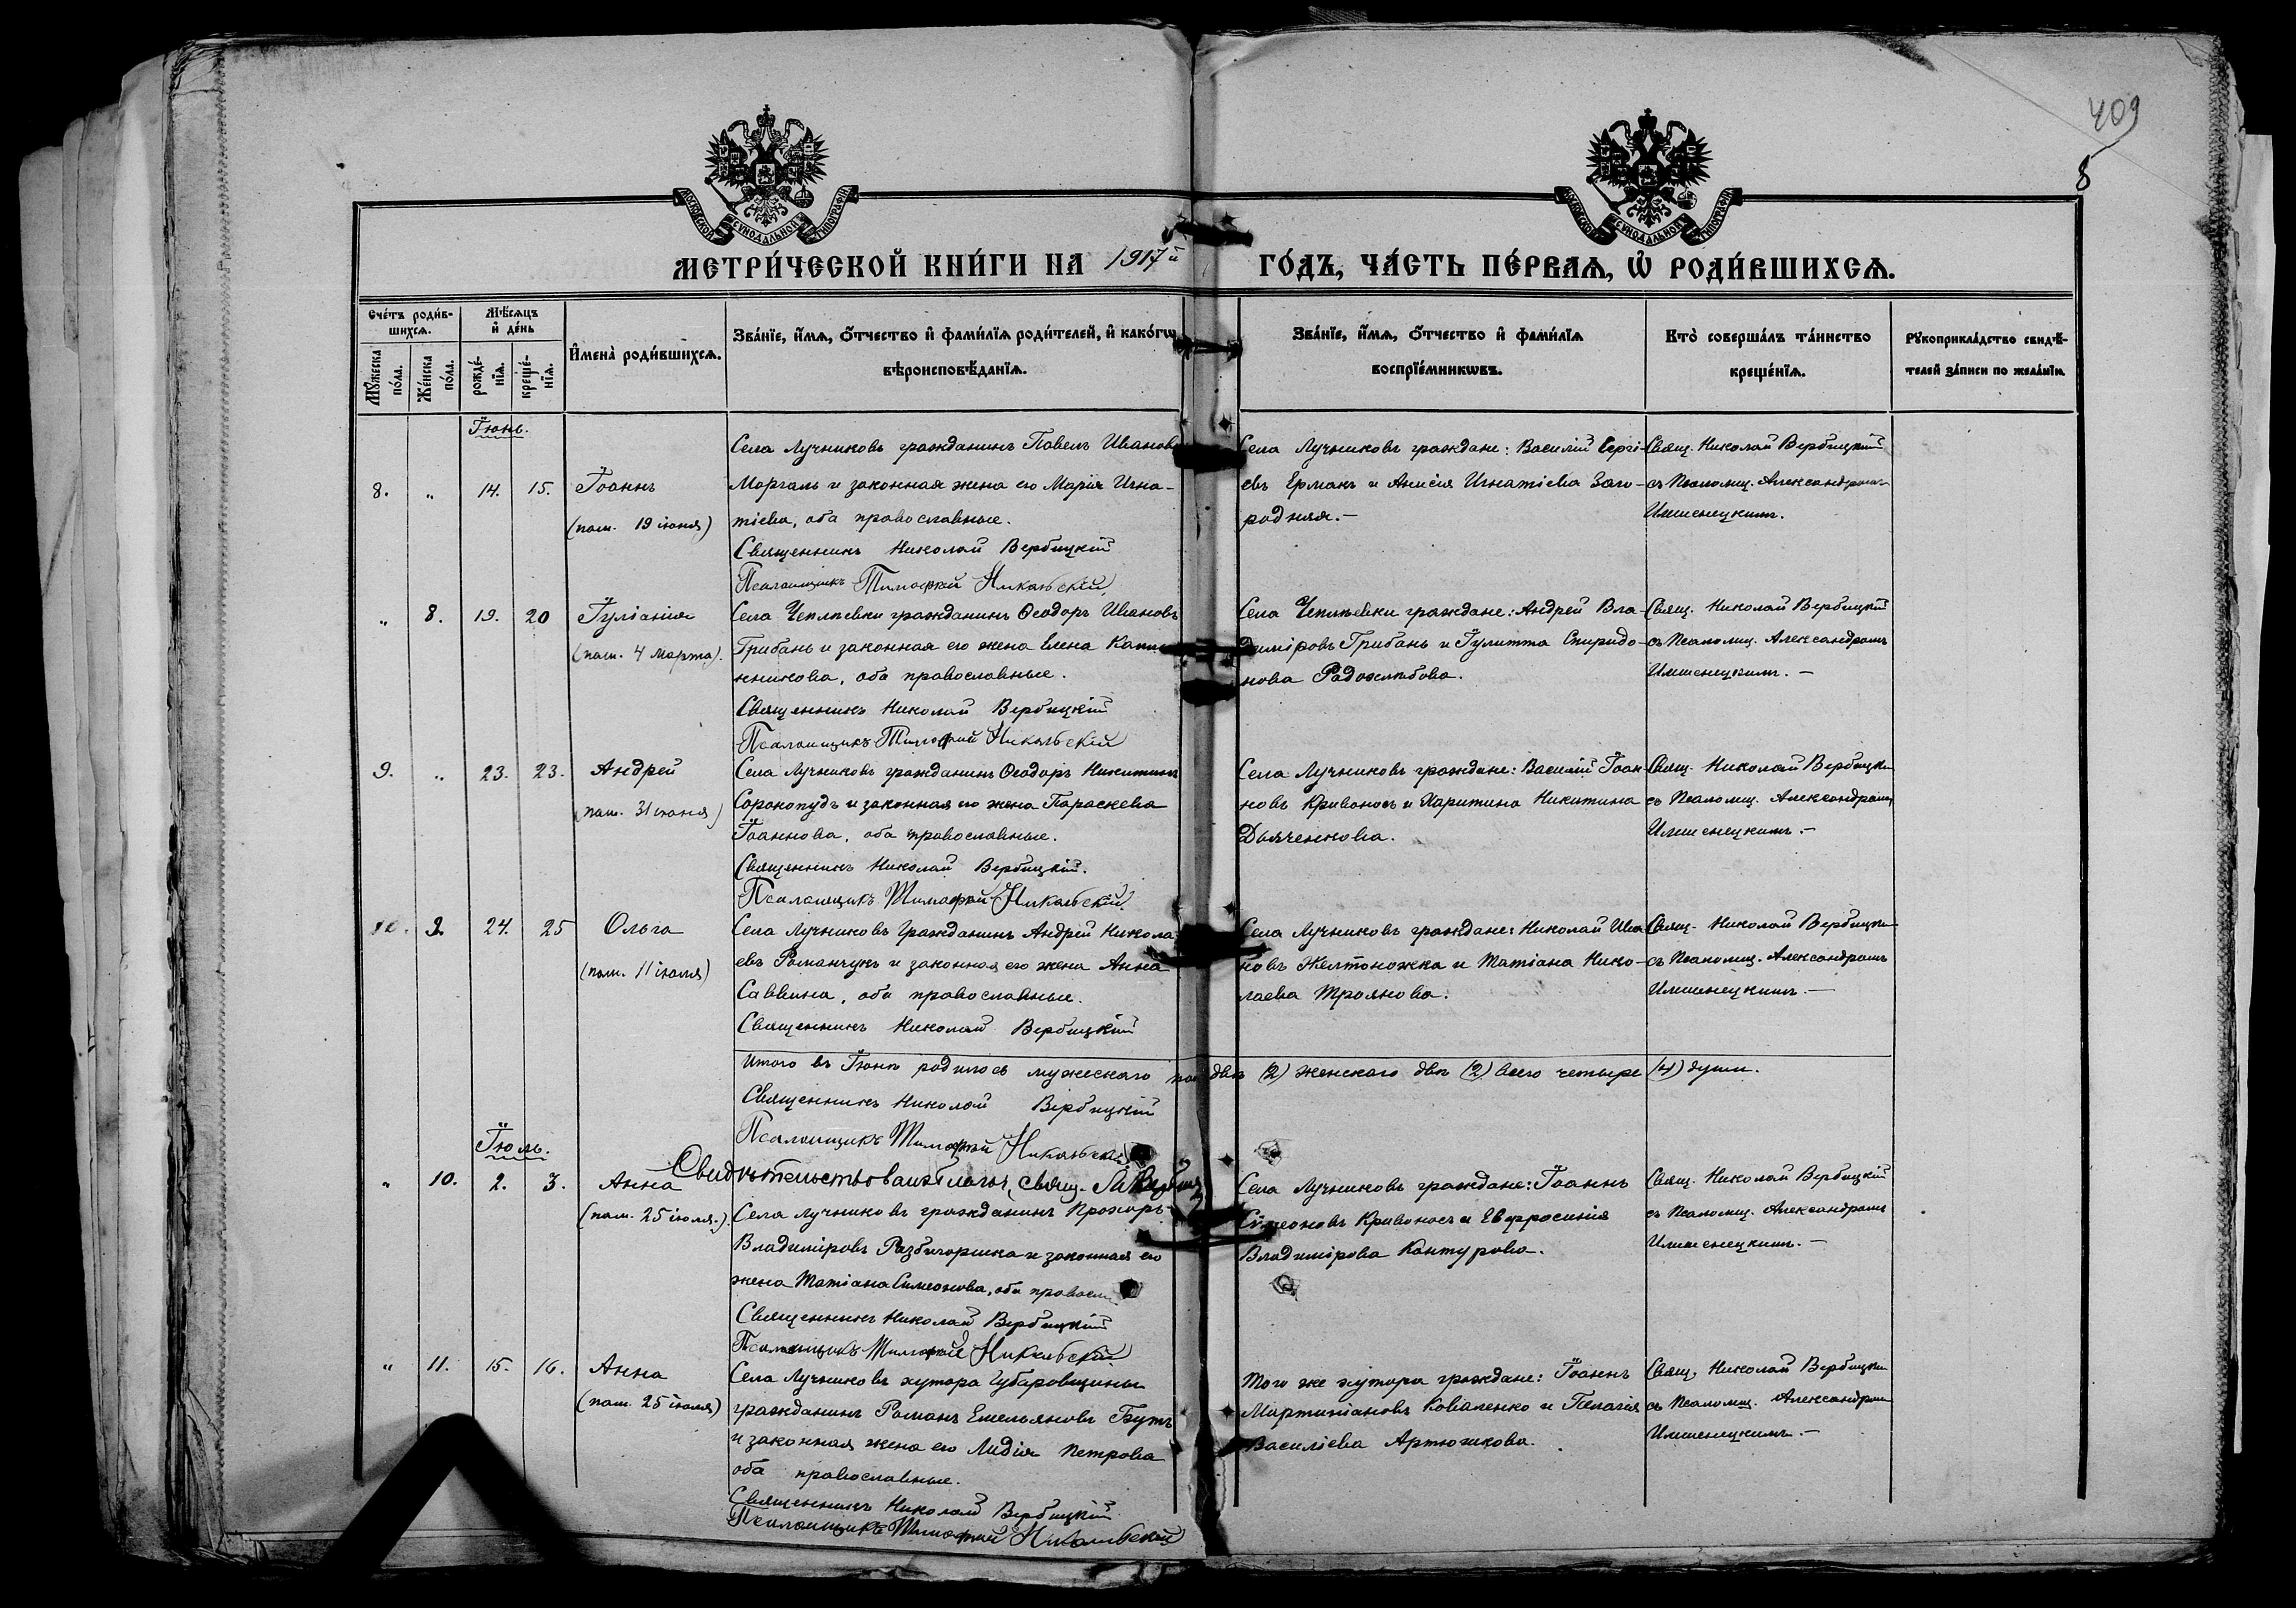 409
8
МОСКОВСКОЙ СѴНОДАЛЬНОЙ ТИПОГРАФІИ
МОСКОВСКОЙ СѴНОДАЛЬНОЙ ТИПОГРАФІИ
МЕТРИ́ЧЕСКОЙ КНИ́ГИ НА 1917й ГО́ДЪ, ЧА́СТЬ ПЕ́РВАѦ, Ѡ҆ РОДИ́ВШИХСѦ.
Сче́тъ роди́в-
шихсѧ.
Мꙋ́жеска
по́ла.
Же́нска
по́ла.
Мѣ́сѧцъ
и҆ де́нь
рожде́-
нїѧ.
креще́-
нїѧ.
И҆мена̀ роди́вшихсѧ.
Зва́нїе, и҆́мѧ, ѻ҆́тчество и҆ фами́лїѧ роди́телей, и҆ како́гѡ
вѣроисповѣ́данїѧ.
Зва́нїе, и҆́мѧ, ѻ҆́тчество и҆ фами́лїѧ
воспрїе́мникѡвъ.
Кто̀ соверша́лъ та́инство
креще́нїѧ.
Рꙋкоприкла́дство свидѣ́-
телей за́писи по жела́нїю.
Іюнь.
8. „ 14. 15. Іоаннъ
(пам. 19 іюня)
Села Лучниковъ гражданинъ Павелъ Ивановъ
Моргаль и законная жена его Марія Игна-
тіева, оба православные.
Священникъ Николай Вербицкій
Псаломщикъ Тимофей Никольскій
Села Лучниковъ граждане: Василій Сергі-
евъ Ерманъ и Анисія Игнатіева Заго-
родняя.–
Свящ. Николай Вербицкій
съ Псаломщ. Александромъ
Имшенецкимъ.
„ 8. 19. 20 Іуліанія
(пам. 4 марта).
Села Чепляевки гражданинъ Ѳеодоръ Ивановъ
Грибанъ и законная его жена Елена
нникова, оба православные.
Священникъ Николай Вербицкій
Псаломщикъ Тимофей Никольскій
Села Чепляевки граждане: Андрей Вла-
диміровъ Грибанъ и Іулитта Спиридо-
нова Радохлѣбова.
Свящ. Николай Вербицкій
съ Псаломщ. Александромъ
Имшенецкимъ.–
9. „ 23. 23. Андрей
(пам. 31 іюня)
Села Лучниковъ гражданинъ Ѳеодоръ Никитинъ
Сорокопудъ и законная его жена Параскева
Іоаннова, оба православные.
Священникъ Николай Вербицкій.
Псаломщикъ Тимофей Никольскій.
Села Лучниковъ граждане: Василій Іоан-
новъ Кривоносъ и Харитина Никитина
Дьяченкова.
Свящ. Николай Вербицкі
съ Псаломщ. Александромъ
Имшенецкимъ.–
9. 24. 25 Ольга
(пам. 11 іюля)
Села Лучниковъ Гражданинъ Андрей Никола
евъ Романчукъ и законная его жена Анна
Саввина, оба православные.
Священникъ Николай Вербицкій
Села Лучниковъ граждане: Николай Ива
новъ Желтоножка и Татіана Нико-
лаева Троянова.
Свящ. Николай Вербицкі
съ Псаломщ. Александромъ
Имшенецкимъ.–
Итого въ Іюнѣ родилось мужескаго пола двѣ (2) женскаго двѣ (2) всего четыре (4) души.
Священникъ Николай Вербицкій
Псаломщикъ Тимофей Никольскій
Іюль.
Свидѣтельствовалъ благоч. свящ.
„ 10. 2. 3. Анна
(пам. 25 іюля.)
Села Лучниковъ гражданинъ Прохоръ
Владиміровъ Разбигоршка и законная его
жена Татіана Симеонова, оба правосл
Священникъ Николай Вербицкій
Псаломщикъ Тимофей Никольскій
Села Лучниковъ граждане: Іоаннъ
Сѵмеоновъ Кривоносъ и Евфросинія
Владимірова Кантурова.
Свящ. Николай Вербицкій
съ Псаломщ. Александромъ
Имшенецкимъ.–
„ 11. 15. 16. Анна
(пам. 25 іюля)
Села Лучниковъ хутора Губаровщины
гражданинъ Романъ Емельяновъ Бутъ
и законная жена его Лидія Петрова
оба православные.
Священникъ Николай Вербицкій
Псаломщикъ Тимофей Никольскій
Того же хутора граждане: Іоаннъ
Мартиніановъ Коваленко и Пелагія
Василіева Артюхкова.
Свящ. Николай Вербицкі
съ Псаломщ. Александромъ
Имшенецкимъ.–